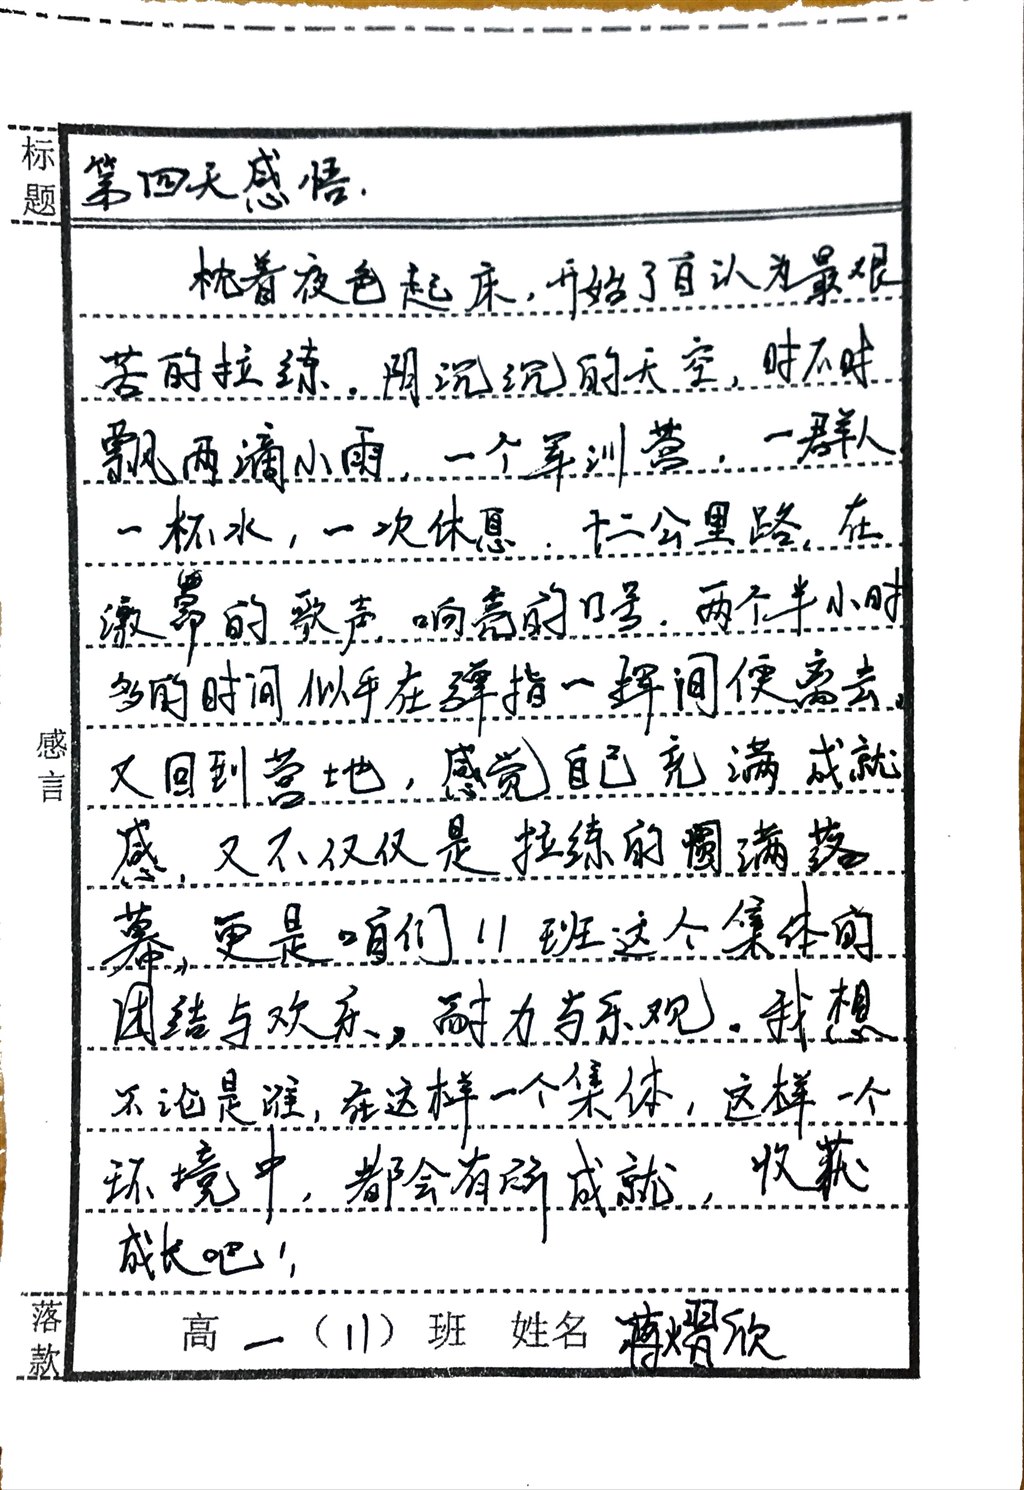 标题
第四天感悟.
枕着夜色起床,开始了自认为最艰
苦的拉练。阴沉沉的天空,时不时
飘两滴小雨,一个军训营,一群人
一杯水,一次休息.十二公里路,在
激昂的歌声,响亮的口号.两个半小时
多的时间似乎在弹指一挥间便离去。
又回到营地,感觉自己充满成就
感,又不仅仅是拉练的圆满落
幕,更是咱们11班这个集体的
团结与欢乐,耐力与乐观。我想
不论是谁,在这样一个集体,这样一个
环境中,都会有所成就,收获
成长吧!
感言
落款
高一(11)班 姓名 蒋熠欣